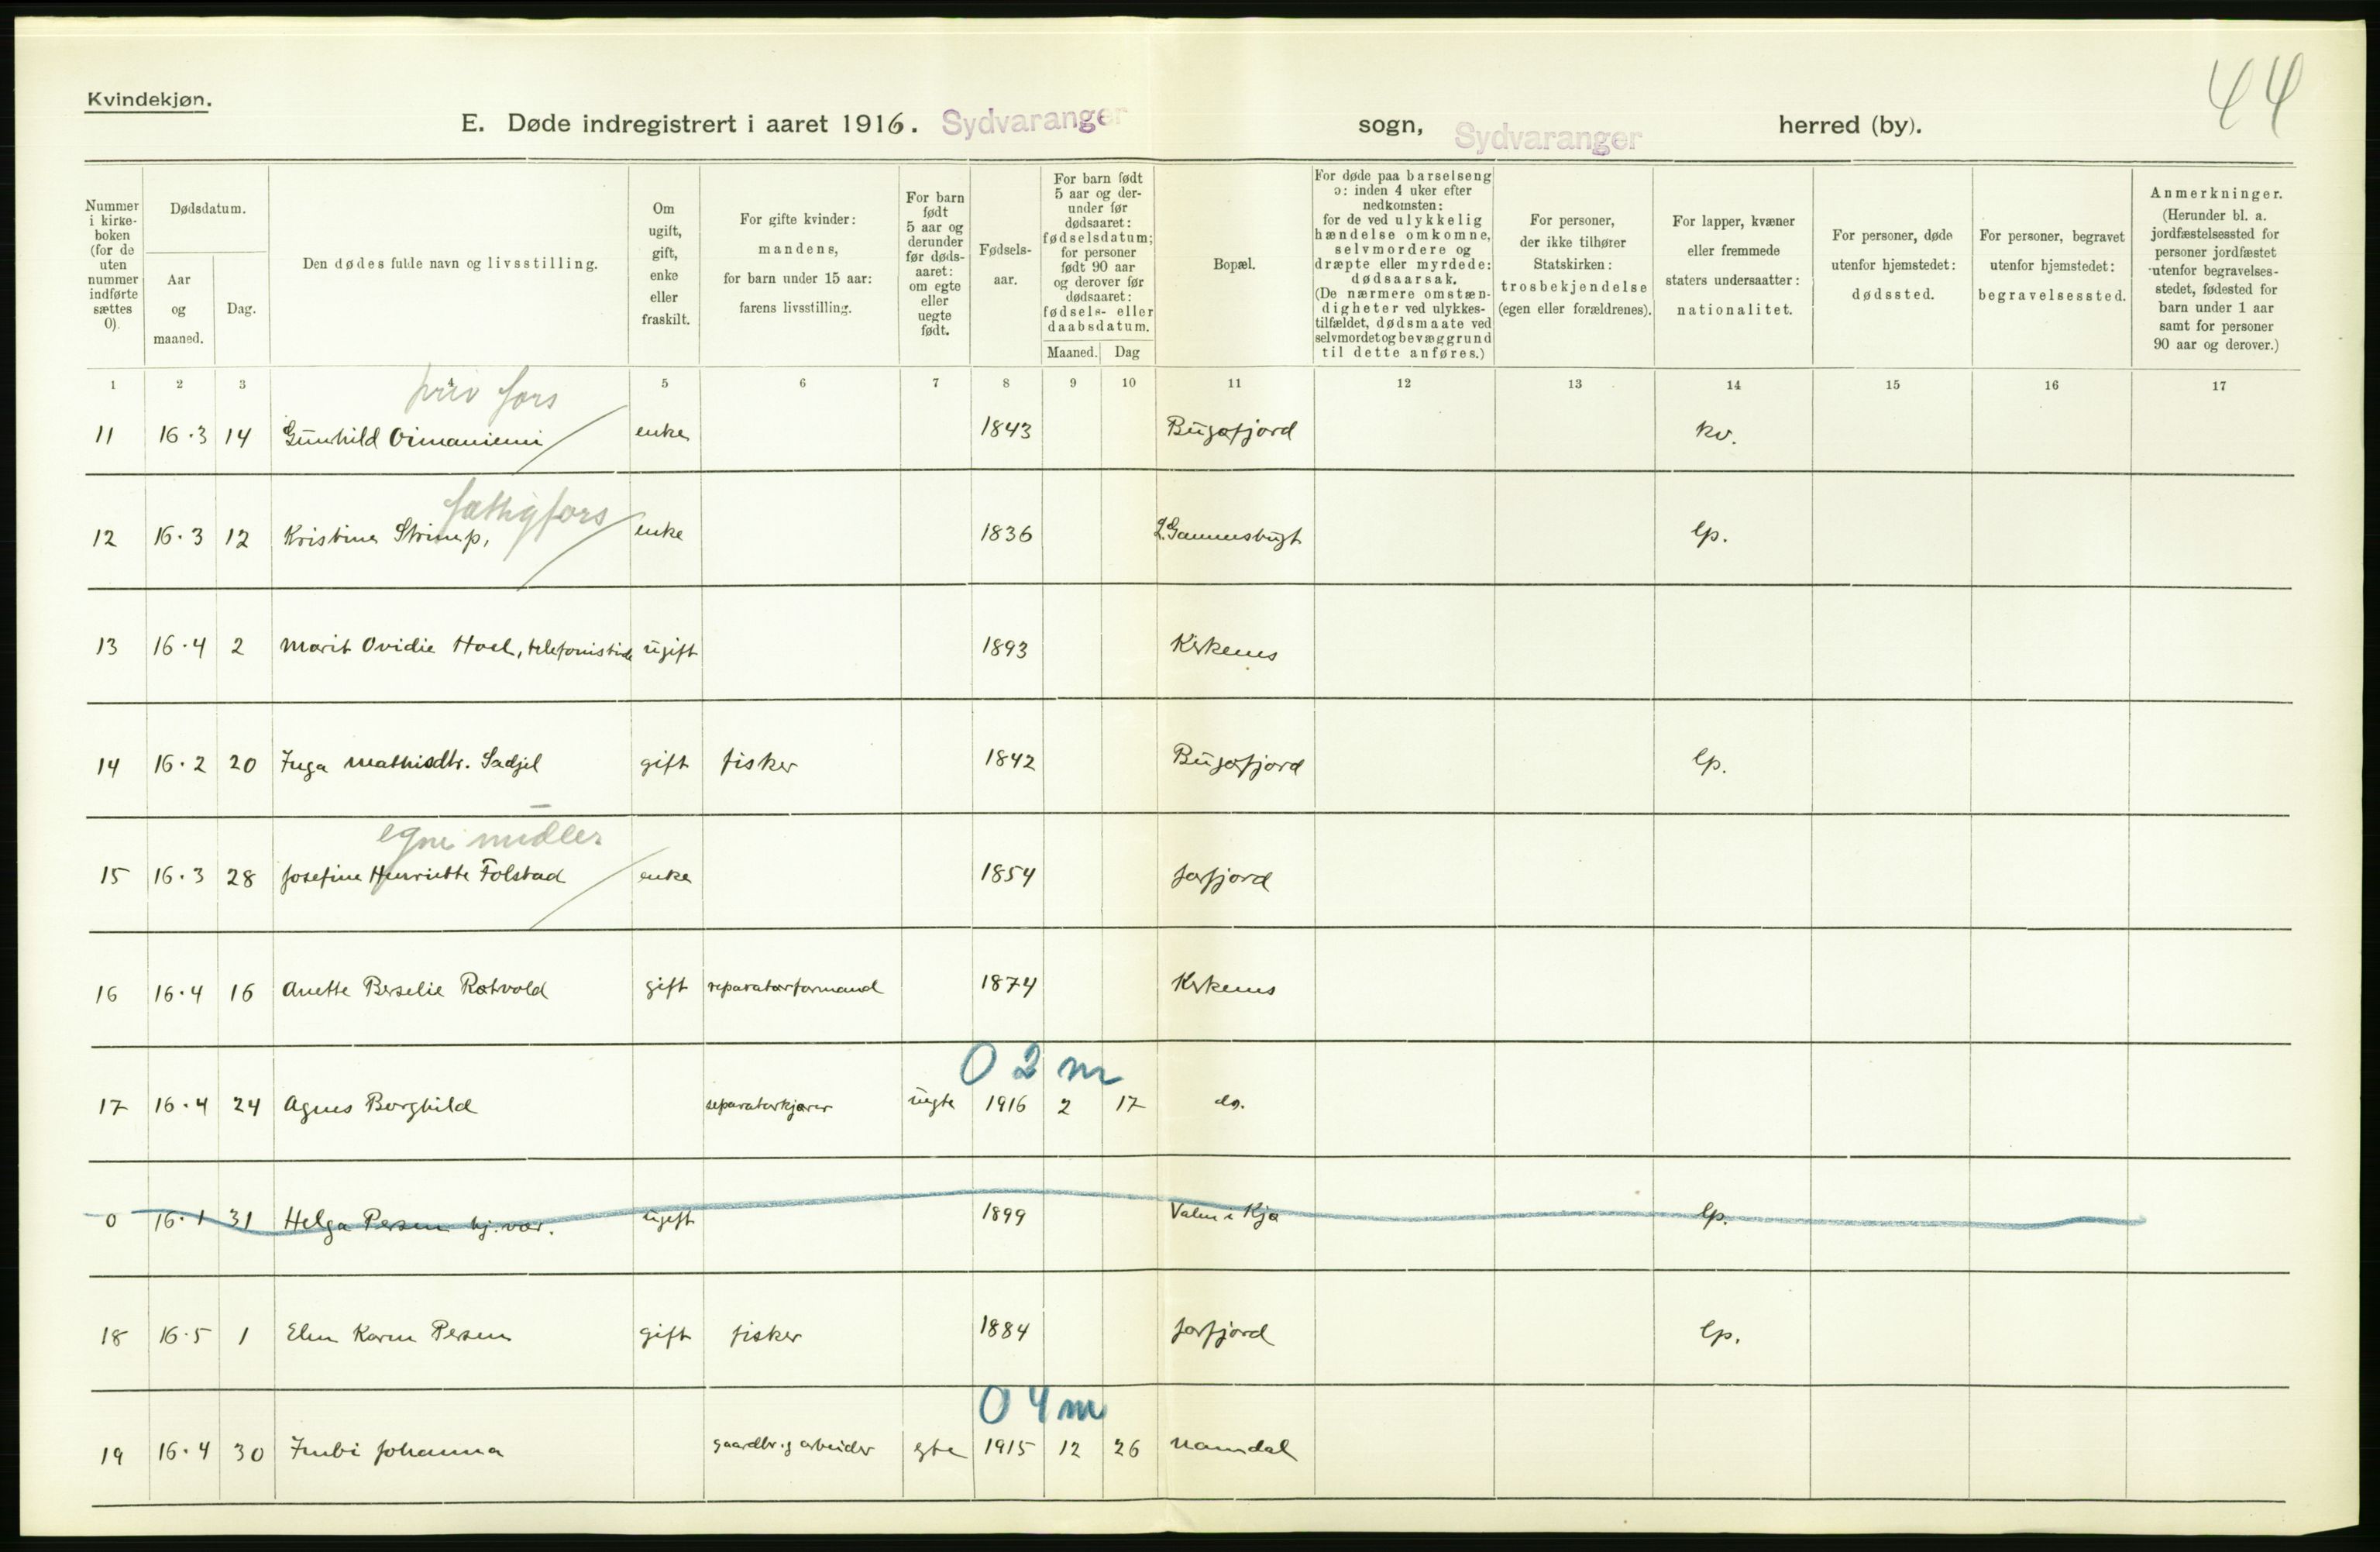 44
Kvindekjøn.
E. Døde indregistrert i aaret 1916. Sydvaranger sogn, Sydvaranger herred (by).
Nummer i kirke-boken (for de uten nummer indførte sættes 0).
Dødsdatum.
Aar og maaned.
Dag.
Den dødes fulde navn og livsstilling.
Om ugift, gift, enke eller fraskilt.
For gifte kvinder: mandens, for barn under 15 aar: farens livsstilling.
For barn født 5 aar og derunder før døds-aaret: om egte eller uegte født.
Fødsels-aar.
For barn født 5 aar og der-under før dødsaaret: fødselsdatum; for personer født 90 aar og derover før dødsaaret: fødsels- eller daabsdatum.
Maaned. Dag
Bopæl.
For døde paa barselseng ɔ: inden 4 uker efter nedkomsten: for de ved ulykkelig hændelse omkomne, selvmordere og dræpte eller myrdede: dødsaarsak. (De nærmere omstæn-digheter ved ulykkes-tilfældet, dødsmaate ved selvmordet og bevæggrund til dette anføres.)
For personer, der ikke tilhører Statskirken: trosbekjendelse (egen eller forældrenes).
For lapper, kvæner eller fremmede staters undersaatter: nationalitet.
For personer, døde utenfor hjemstedet: dødssted.
For personer, begravet utenfor hjemstedet: begravelsessted.
Anmerkninger. (Herunder bl. a. jordfæstelsessted for personer jordfæstet utenfor begravelses-stedet, fødested for barn under 1 aar samt for personer 90 aar og derover.)
1 2 3 4 5 6 7 8 9 10 11 12 13 14 15 16 17
priv fors
11 16.3 14 Gunhild Oimaniemi enke 1843 Bugøfjord kv.
fattigfors
12 16.3 12 Kristine enke 1836 lp.
13 16.4 2 Marit Ovidie Hoel, telefonistinde ugift 1893 Kirkenes
14 16.2 20 Inga Mathisdtr. Sadjel gift fisker 1842 Bugøfjord lp.
egne midler
15 16.3 28 Josefine Henriette Folstad enke 1854 Jarfjord
16 16.4 16 Anette Berselie Rotvold gift reparatørformand 1874 Kirkenes
0 2 m
17 16.4 24 Agnes Borghild separatørkjører uegte 1916 2 17 do.
0 16.1 31 Helga Persen hj. vær. ugift 1899 lp.
18 16.5 1 Elen Karen Persen gift fisker 1884 Jarfjord lp.
0 4 m
19 16.4 30 Johanna gaardbr. og arbeider egte 1915 12 26 Namdal